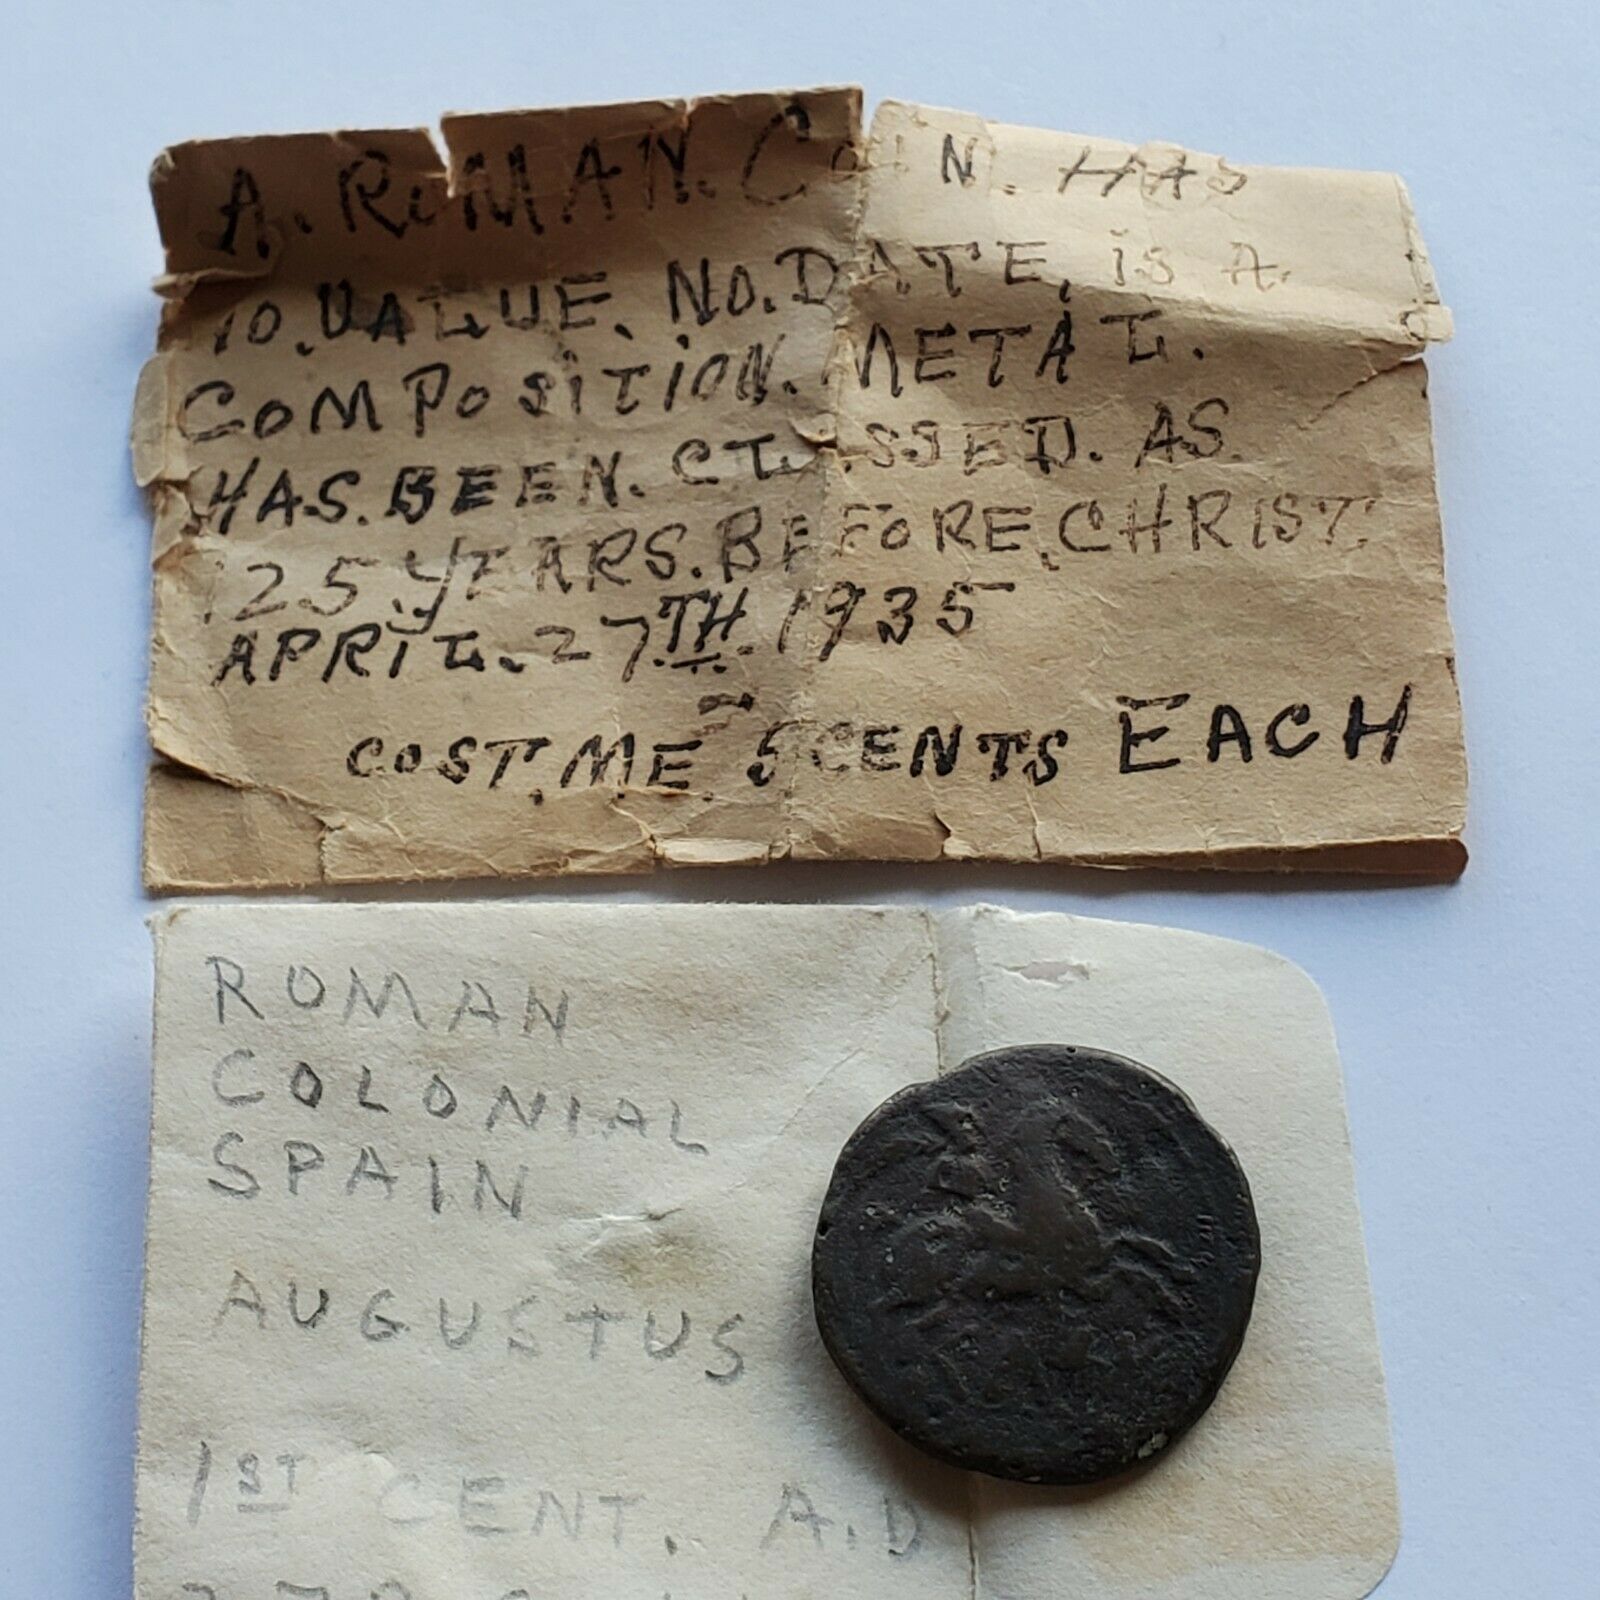 A. ROMAN. COIN. HAS
NO. VALUE. NO. DATE, is A.
COMPOSITION. METAL.
HAS. BEEN. CLASSED. AS.
125 YEARS. BEFORE. CHRIST.
APRIL. 27TH. 1935
COST. ME. 5 CENTS EACH
ROMAN
COLONIAL
SPAIN
AUGUSTUS
1ST CENT. A.D